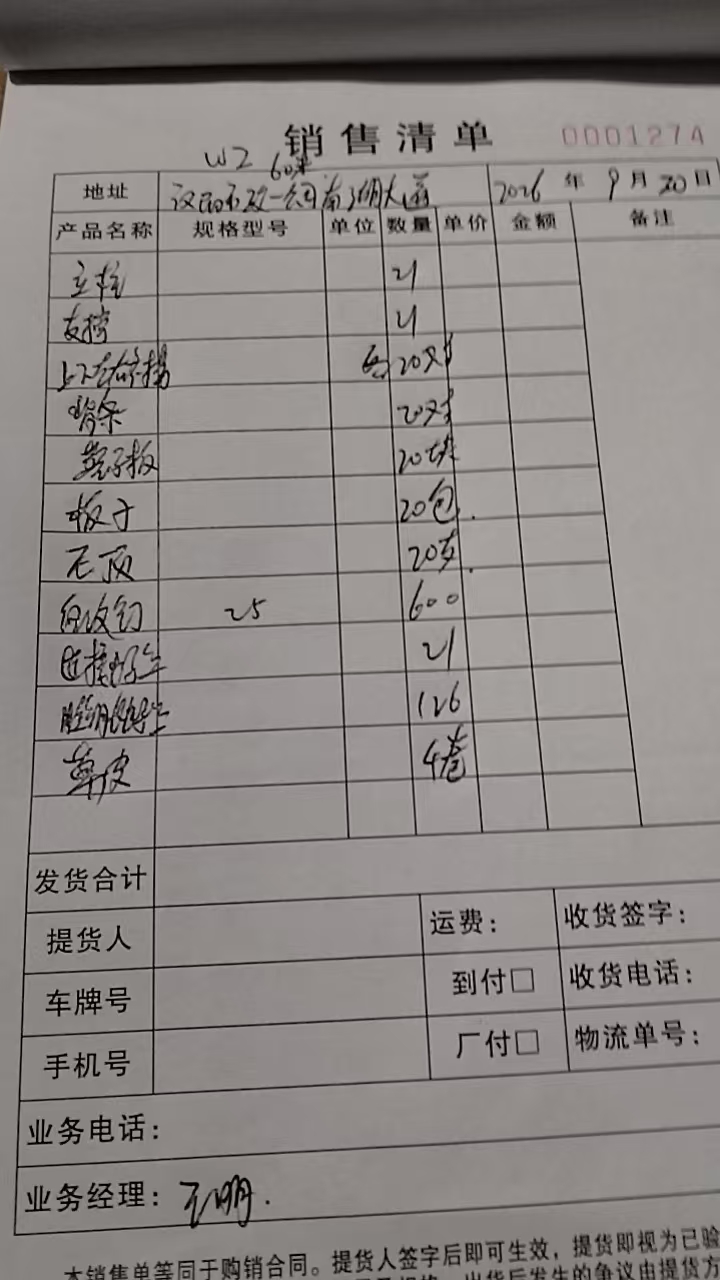 销售清单 0001274
W2 60米
地址 南湖大道 2026 年 9 月 20 日
产品名称 规格型号 单位 数量 单价 金额 备注
立柱 21
支撑 21
上下左右 每 20对
背条 20对
20块
板子 20包.
压顶 20支.
25 600
连接 21
126
草皮 4卷
发货合计
提货人 运费: 收货签字:
车牌号 到付□ 收货电话:
手机号 厂付□ 物流单号:
业务电话:
业务经理: 王明.
本销售单等同于购销合同。提货人签字后即可生效，提货即视为已验
出货后发生的争议由提货方